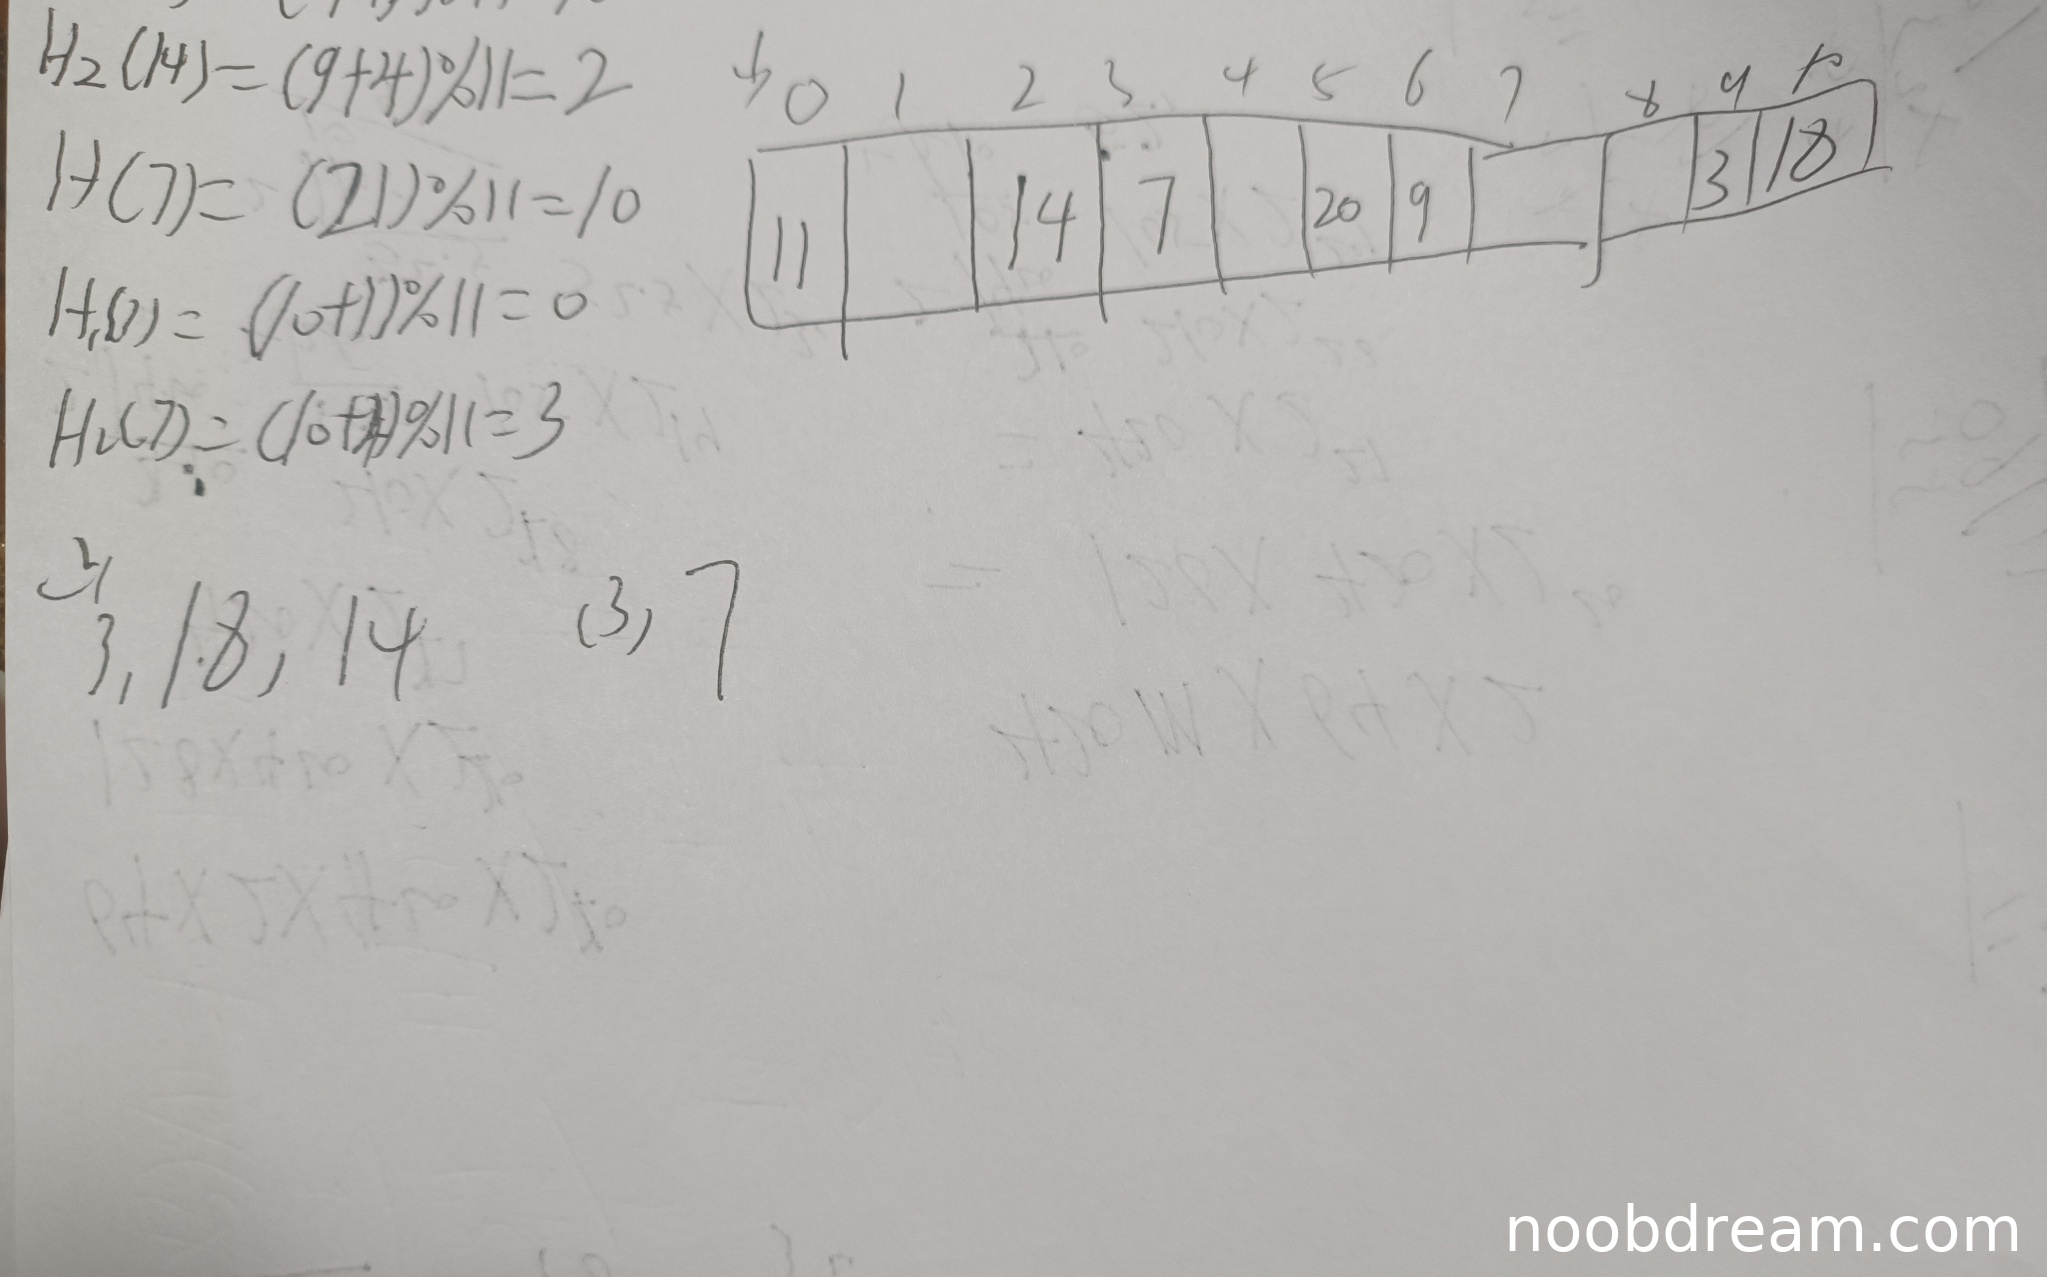 H2(14)=(9+4)%11=2
H(7)=(21)%11=10
H1(7)=(10+1)%11=0
H2(7)=(10+4)%11=3
0 1 2 3 4 5 6 7 8 9 10
11 14 7 20 9 3 18
3, 18, 14 (3, 7
noobdream.com